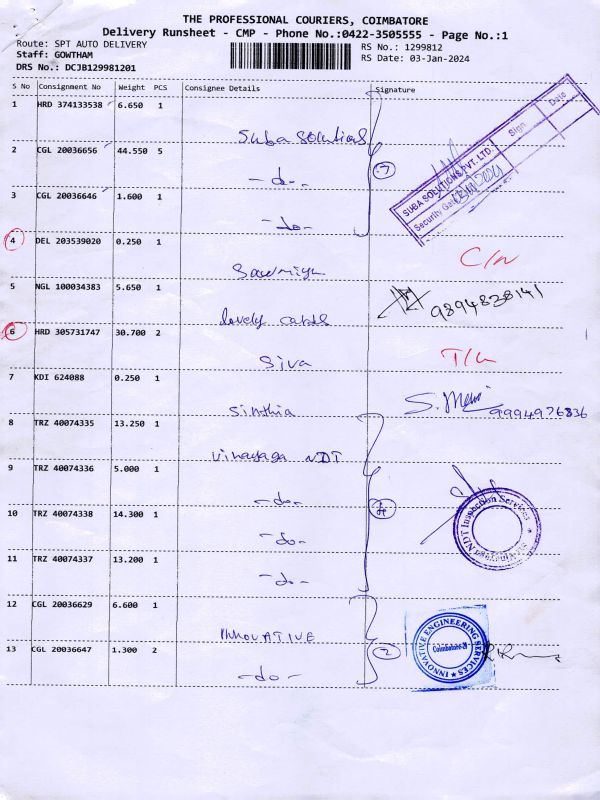 THE PROFESSIONAL COURIERS, COIMBATORE
Delivery Runsheet - CMP - Phone No.:0422-3505555 - Page No.:1
Route: SPT AUTO DELIVERY
Staff: GOWTHAM
DRS No.: DCJB129981201
RS No.: 1299812
RS Date: 03-Jan-2024
S No Consignment No Weight PCS Consignee Details Signature
1 HRD 374133538 6.650 1 Suba Solutions
2 CGL 20036656 44.550 5 -do-
3 CGL 20036646 1.600 1 -do-
SUBA SOLUTIONS PVT. LTD.
Security Gate
Sign
Date
4 DEL 203539020 0.250 1 Sowmiya C/N
5 NGL 100034383 5.650 1 lovely cards 9894838141
6 HRD 305731747 30.700 2 Siva
7 KDI 624088 0.250 1 Sinthia S. Meni 9994976836
8 TRZ 40074335 13.250 1 Vinayaga NDT
9 TRZ 40074336 5.000 1 -do-
10 TRZ 40074338 14.300 1 -do-
11 TRZ 40074337 13.200 1 -do-
NDT Inspection Services
12 CGL 20036629 6.600 1 InnovATIVE
13 CGL 20036647 1.300 2 -do- 2
INNOVATIVE ENGINEERING SERVICES
Coimbatore